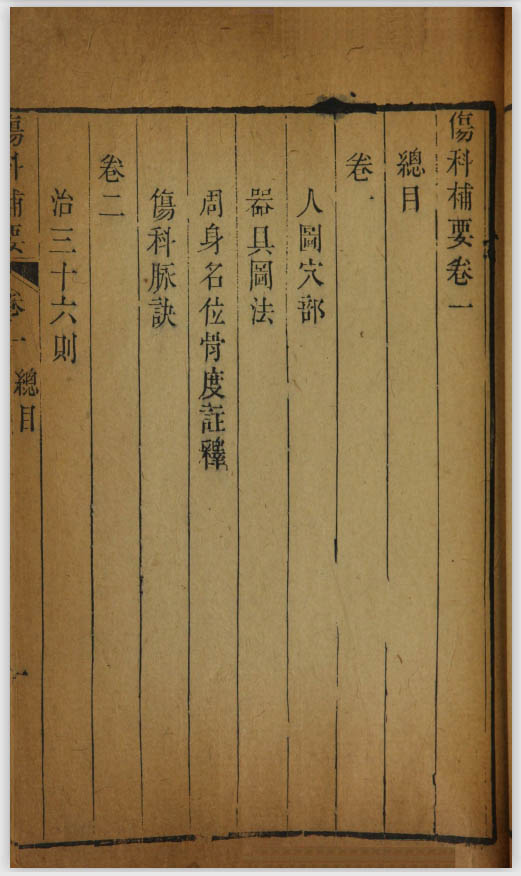 傷科補要卷一
總目
卷
人圖穴部
器具圖法
周身名位骨度註釋
傷科脉訣
卷二
治三十六則
傷科補要 卷一 總目 一